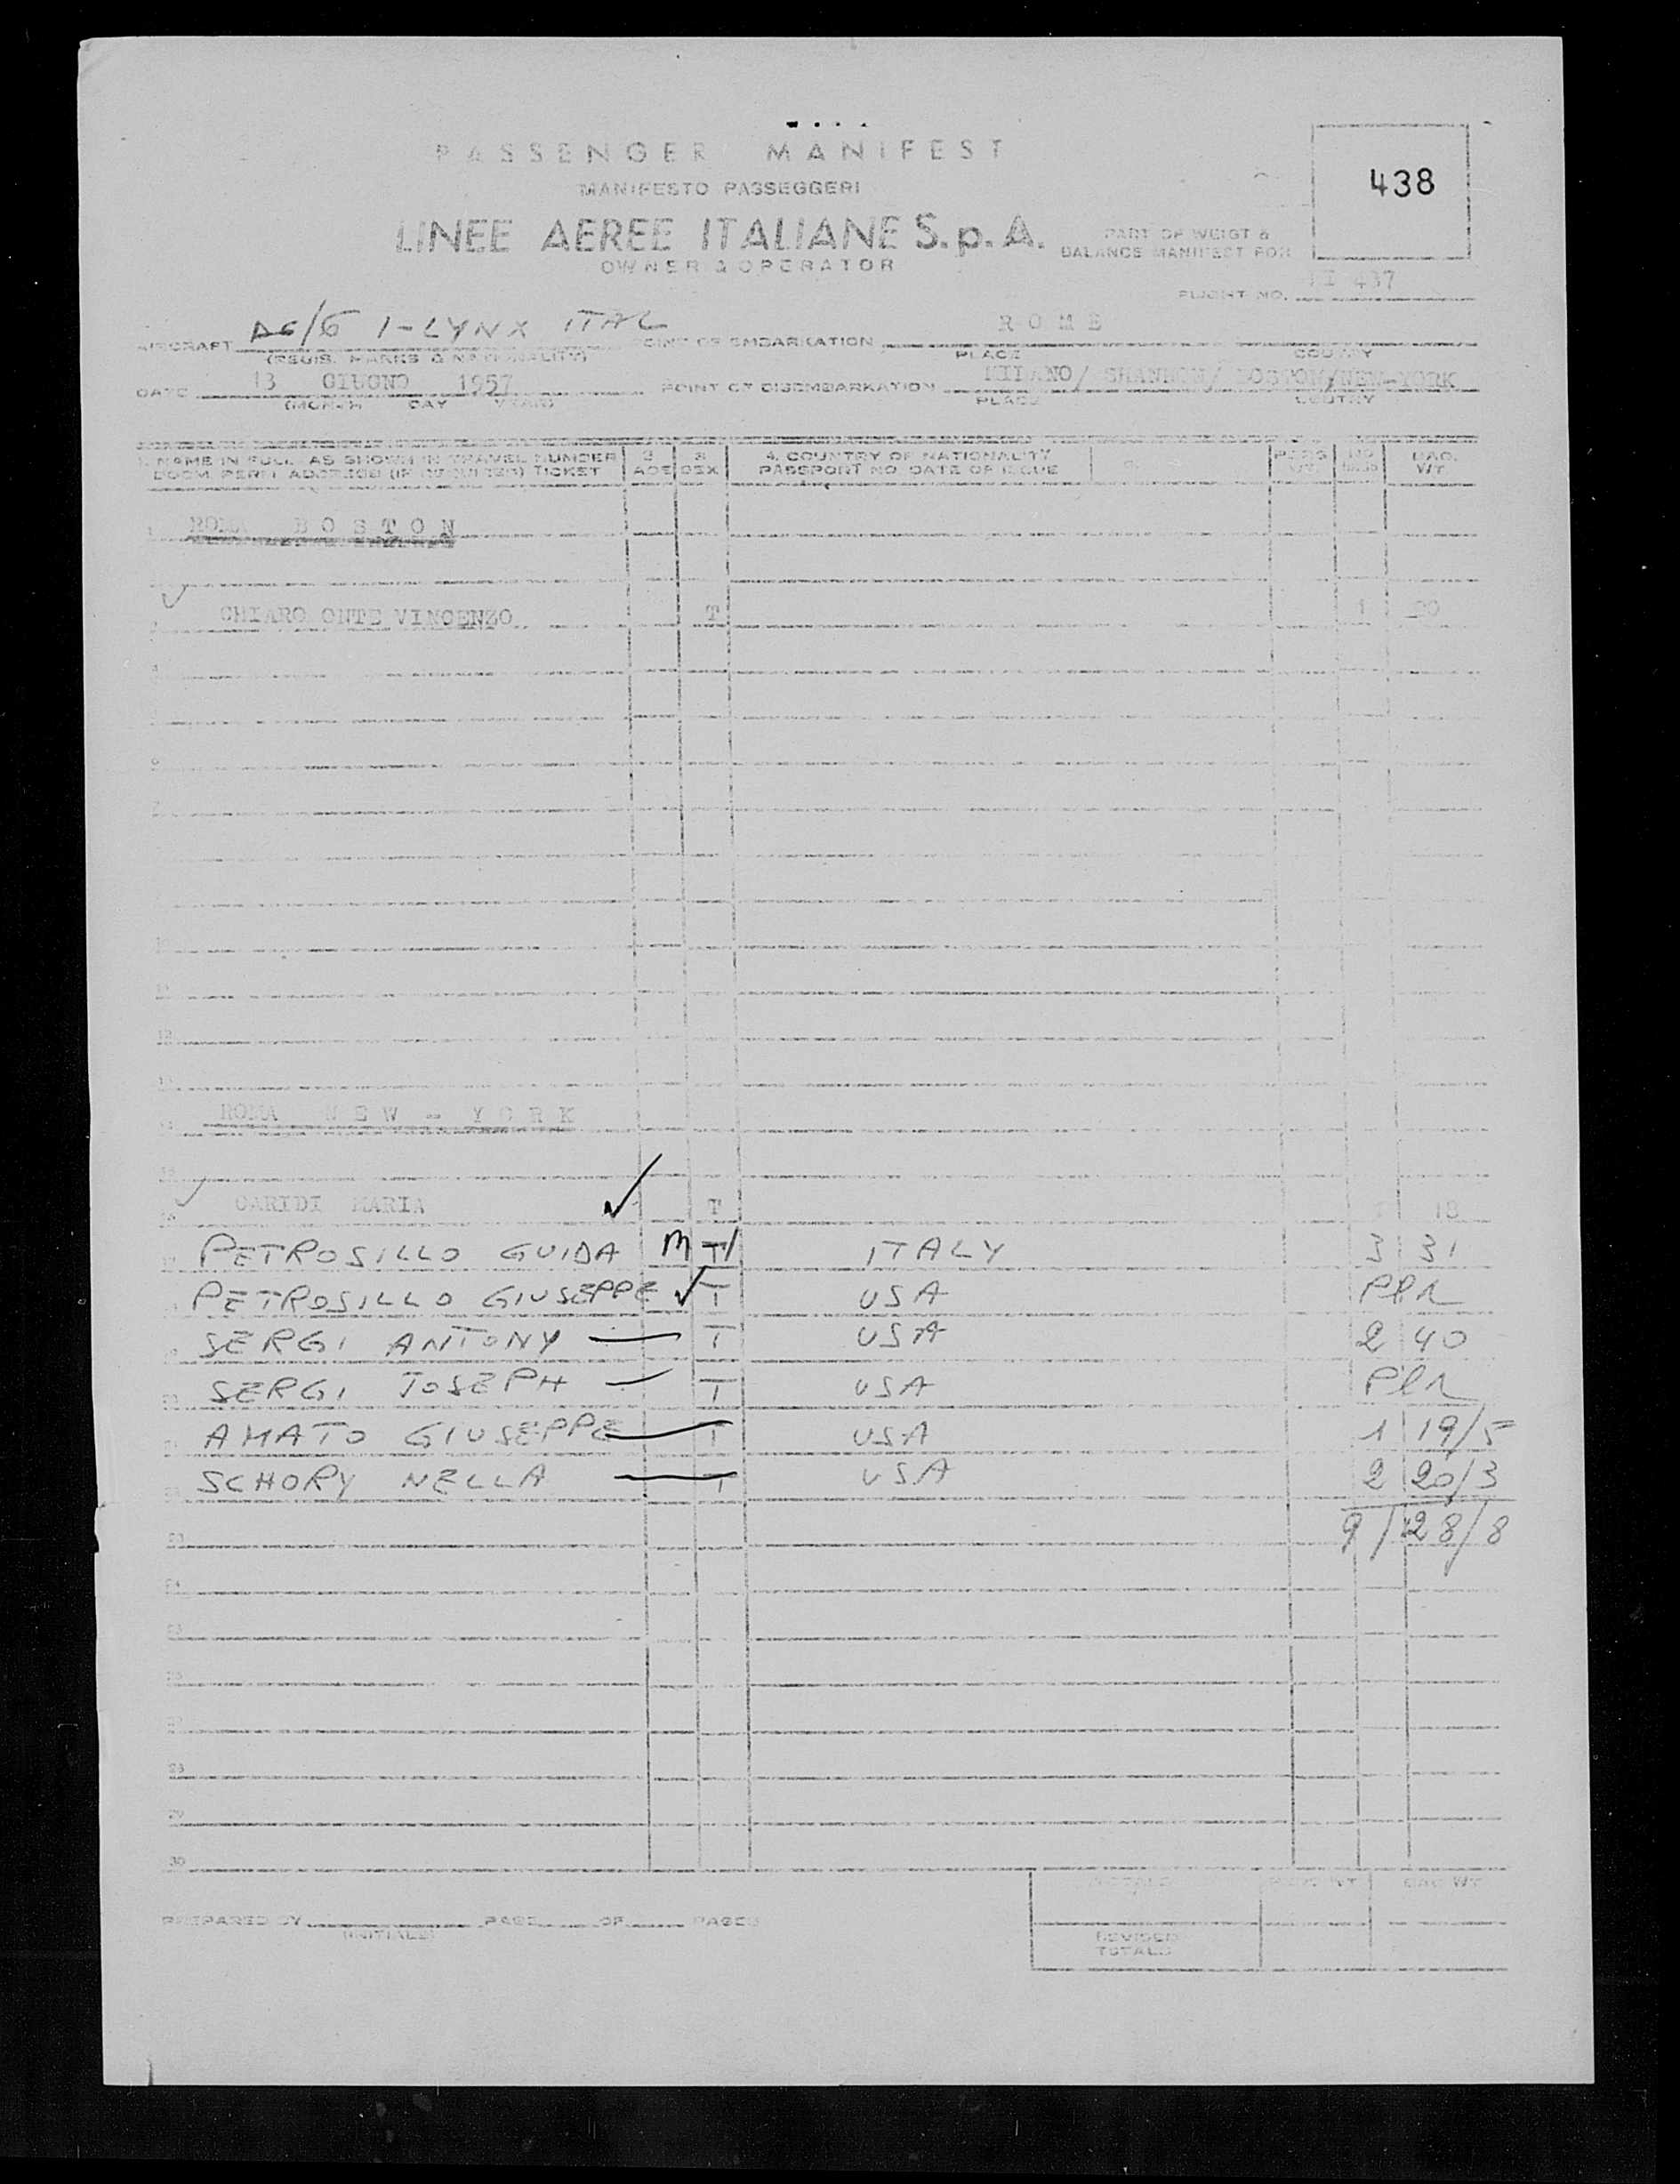 PASSENGER MANIFEST
MANIFESTO PASSEGGERI
438
LINEE AEREE ITALIANE S.p.A.
OWNER & OPERATOR
PART OF WEIGT &
BALANCE MANIFEST FOR
FLIGHT NO. 437
AIRCRAFT I-LYNX ITAL
(REGIS. MARKS & NATIONALITY)
POINT OF EMBARKATION ROME
PLACE COUTRY
DATE 13 GIUGNO 1957
(MONTH DAY YEAR)
POINT OF DISEMBARKATION MILANO/ SHANNON/ BOSTON/NEW-YORK
PLACE COUTRY
1. NAME IN FULL AS SHOWN IN TRAVEL NUMBER 2 3 4. COUNTRY OF NATIONALITY BAG.
DOCM. PERM ADDRESS (IF REQUIRED) TICKET AGE SEX PASSPORT NO. DATE OF ISSUE WT.
1 ROMA BOSTON
CHIARO ONTE VINCENZO T 1 20
4
6
7
12
ROMA NEW - YORK
CARIDI MARIA T 18
PETROSILLO GUIDA M T ITALY 3 31
PETROSILLO GIUSEPPE T USA
SERGI ANTONY T USA 2 40
SERGI JOSEPH T USA
AMATO GIUSEPPE T USA 1 19/5
SCHORY NELLA T USA 2 20/3
9/128/8
23
24
25
26
27
28
29
30
TOTALS BAG WT
PREPARED BY PAGE OF PAGES
(INITIALS)
REVISED
TOTALS